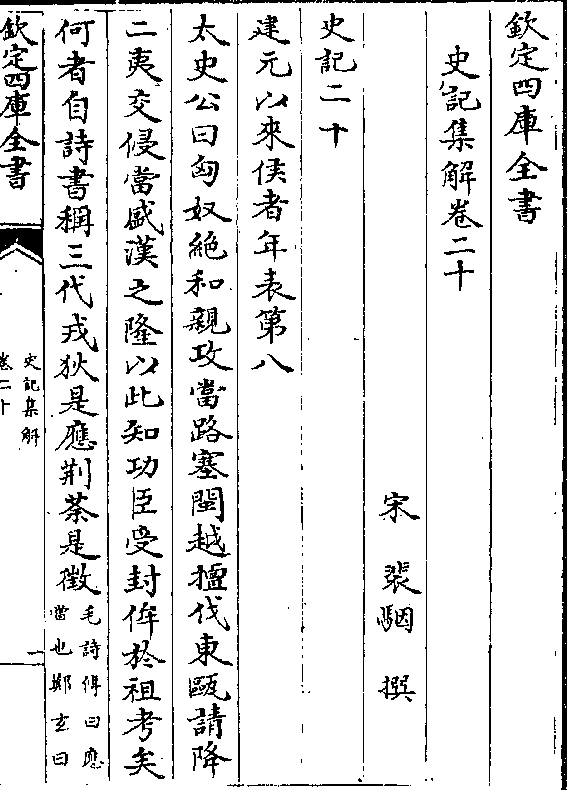 欽定四庫全書
史記集解卷二十
宋 裴駰 撰
史記二十
建元以來侯者年表第八
太史公曰匈奴絶和親攻當路塞閩越擅伐東甌請降
二夷交侵當盛漢之隆以此知功臣受封侔於祖考矣
何者自詩書稱三代戎狄是應荆荼是徵
毛詩傳曰應
當也鄭玄曰
欽定四庫全書
史記集解
卷二十
一